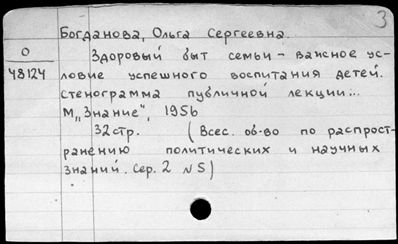 3
Богданова, Ольга Сергеевна.
О
48124
Здоровый быт семьи – важное ус-
ловие успешного воспитания детей.
Стенограмма публичной лекции...
М., "Знание", 1956
32 стр. (Всес. об-во по распрост-
ранению политических и научных
знаний. Сер. 2 №5)